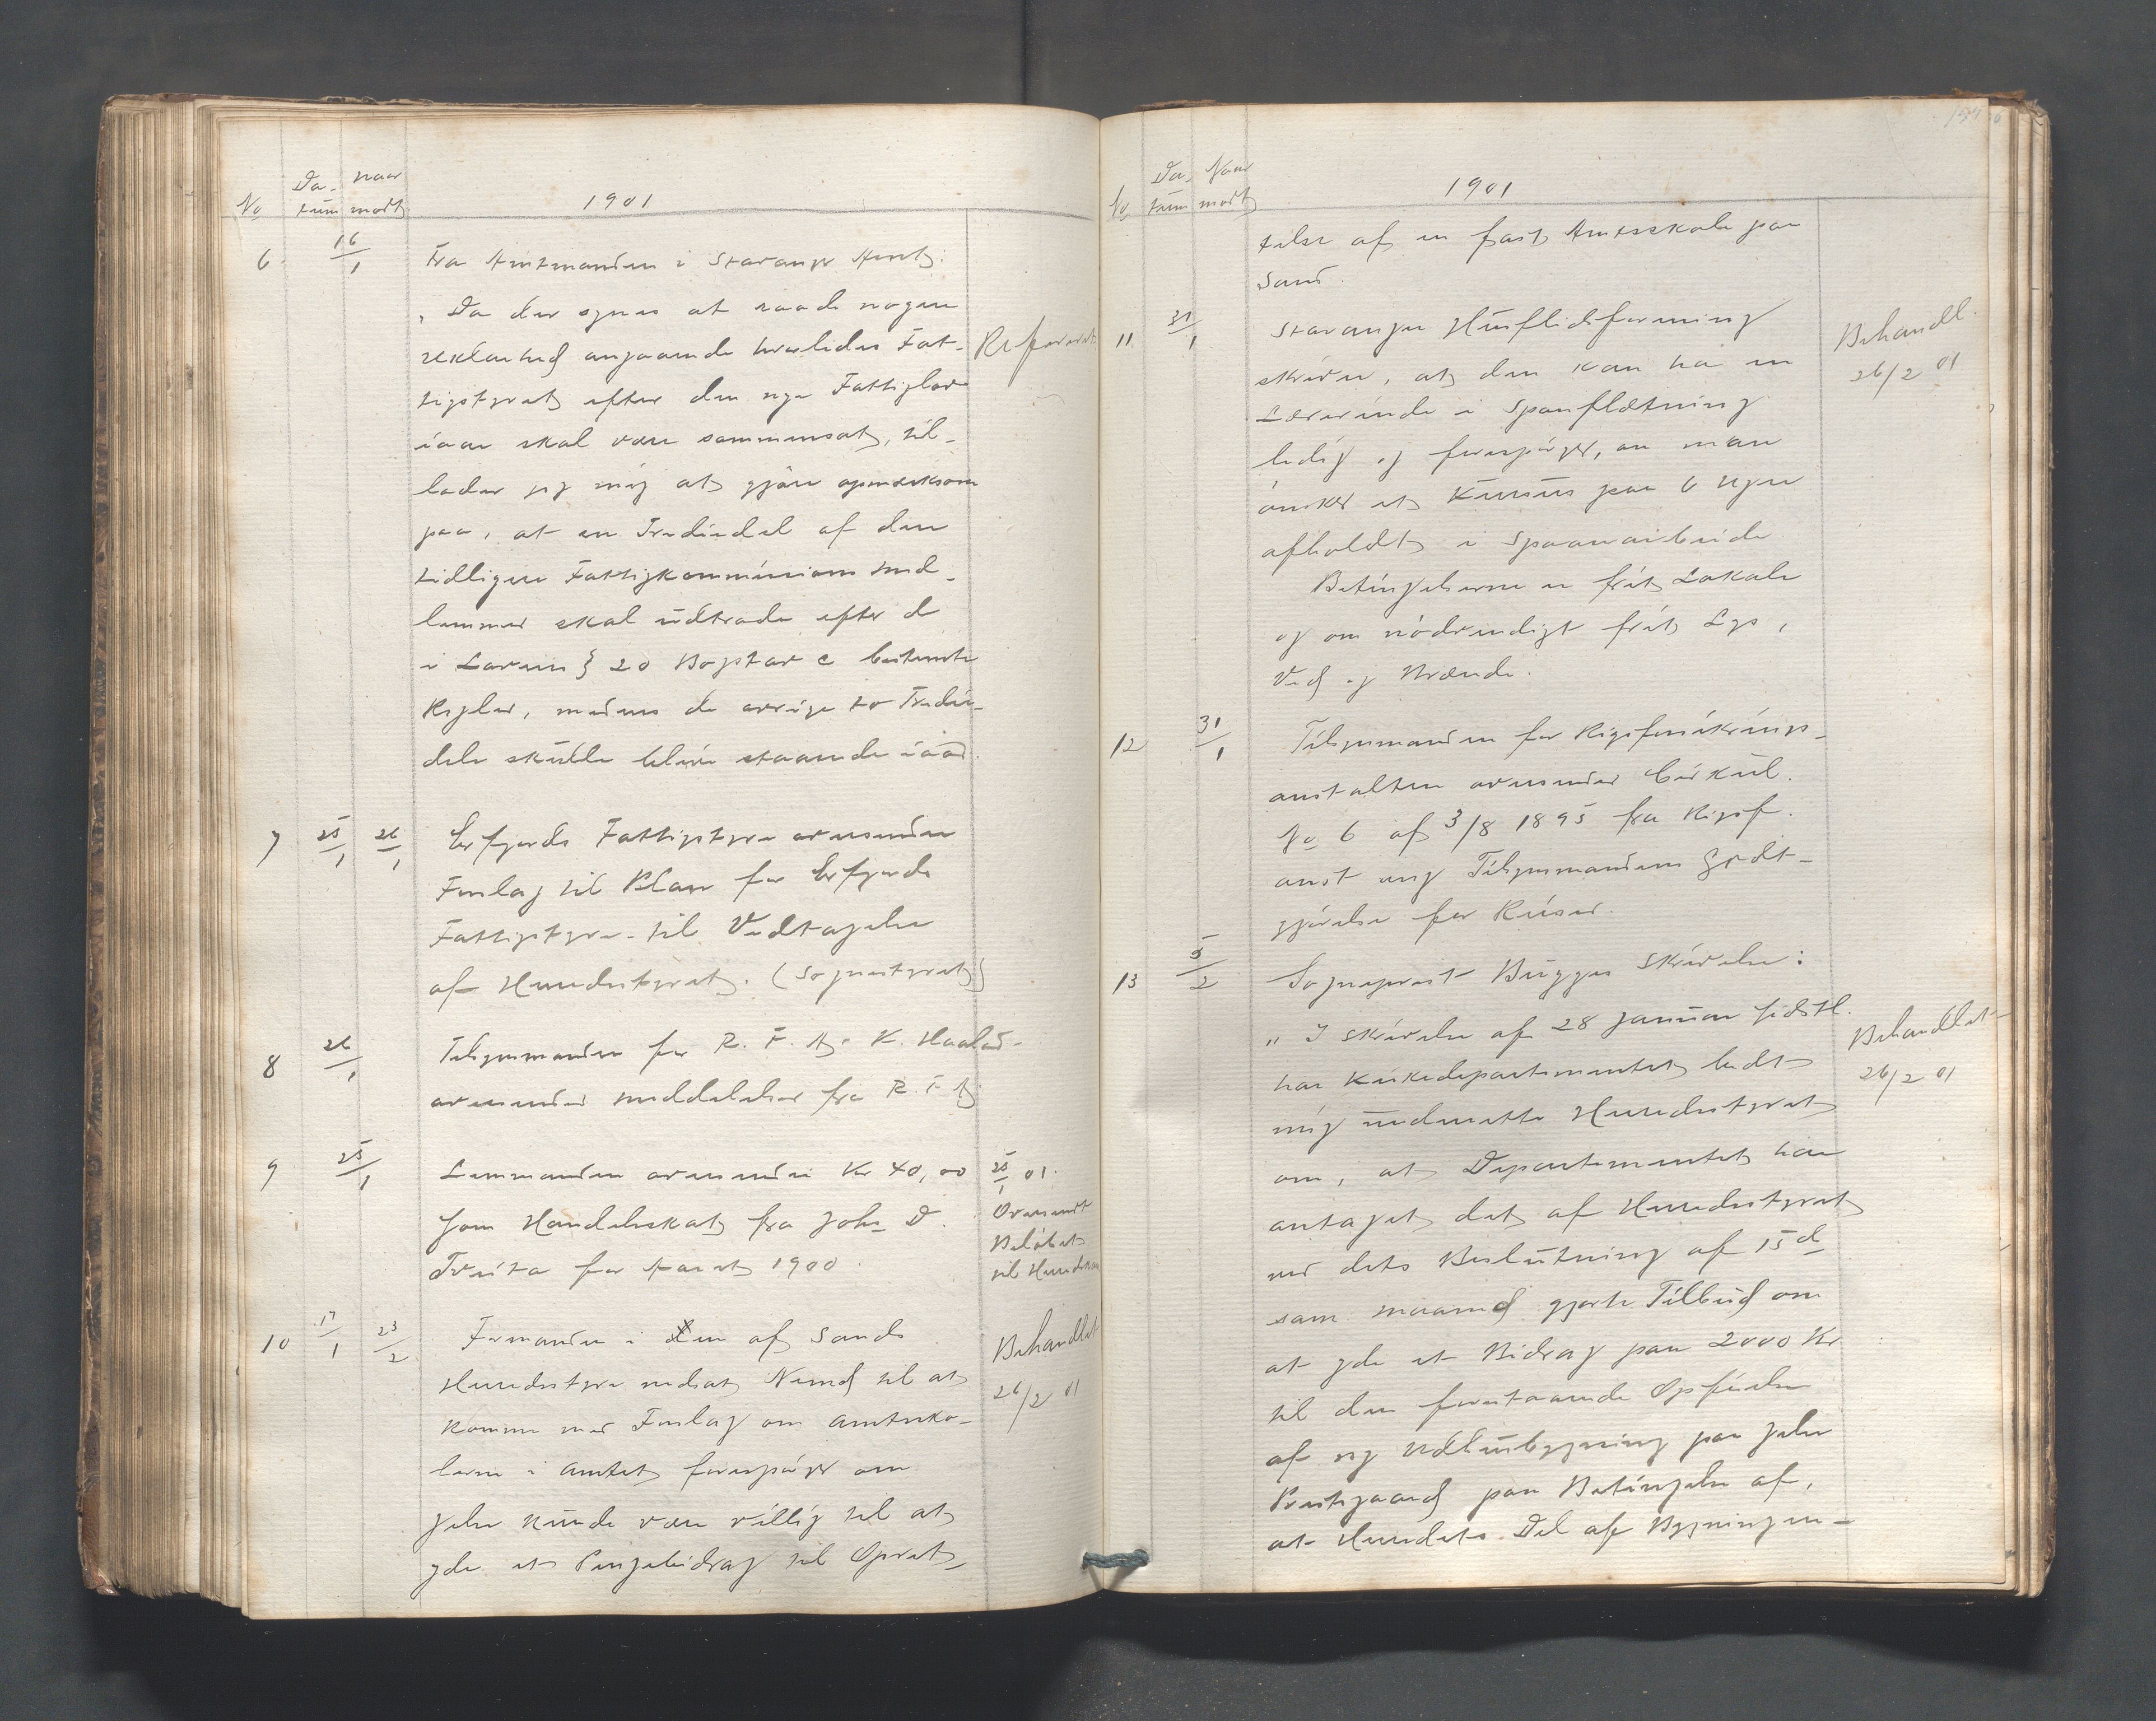 No Da- Naar
tum modt.
1901
6. 16/1 Fra Amtmanden i Stavanger Amt:
„Da der synes at raade nogen
uklarhed angaaende hvorledes Fat-
Refereret
tigstyret efter den nye Fattiglov
iaar skal være sammensat, til-
lader jeg mig at gjøre opmerksom
paa, at en Trediedel af den
tidligere Fattigkommissions Med-
lemmer skal udtræde efter de
i Lovens § 20 Bogstav c bestemte
Regler, medens de øvrige to Tredie-
dele skulle blive staaende iaar.
7 25/1 26/1 Erfjords Fattigstyre oversender
Forslag til Plan for Erfjords
Fattigstyre til Vedtagelse
af Herredsstyret. (Sognestyret)
8 26/1 Tilsynsmanden for R. F. A. K. Haaland
oversender meddelelser fra R F A
9 25/1 Lensmanden oversender Kr 40,00
som Handelsskat fra John D.
Tveita for Aaret 1900.
25/1 01.
Oversendt
Beløbet
til Herredskas
10 17/1 23/2 Formanden i den af Sands
Herredsstyre nedsat Nemd til at
komme med Forslag om Amtssko-
lerne i Amtet forespørger om
Jelse kunde være villig til at
yde et Pengebidrag til Opret-
Behandlet
26/2 01
No Da- Naar
tum modt
1901
telse af en fast Amtsskole paa
Sand.
11. 31/1 Stavanger Husflidsforening
skriver, at den kan ha en
Lærerinde i Spanfletning
ledig og forespørger, om man
ønsker et Kursus paa 6 Uger
afholdt i Spaanarbeide
Betingelserne er frit Lokale
og om nødvendigt frit Lys,
Ved og Brænde.
Behandl.
26/2 01
12 31/1 Tilsynsmanden for Rigsforsikrings-
anstalten oversender Cirkul.
No 6 af 3/8 1895 fra Rigsf.
anst ang Tilsynsmandens Godt-
gjørelse for Reiser.
13 5/2 Sogneprest Bugges Skrivelse:
„I skrivelse af 28 Januar sidstl.
har Kirkedepartementet bedt
mig underrette Herredsstyret
om, at Departementet har
antaget det af Herredsstyret
ved dets Beslutning af 15d
sam. maaned gjorte Tilbud om
at yde et Bidrag paa 2000 Kr
til den forestaaende Opførelse
af ny Udhusbygning paa Jelse
Prestegaard paa Betingelse af,
at Herredets Del af Bygningen-
Behandlet
26/2 01